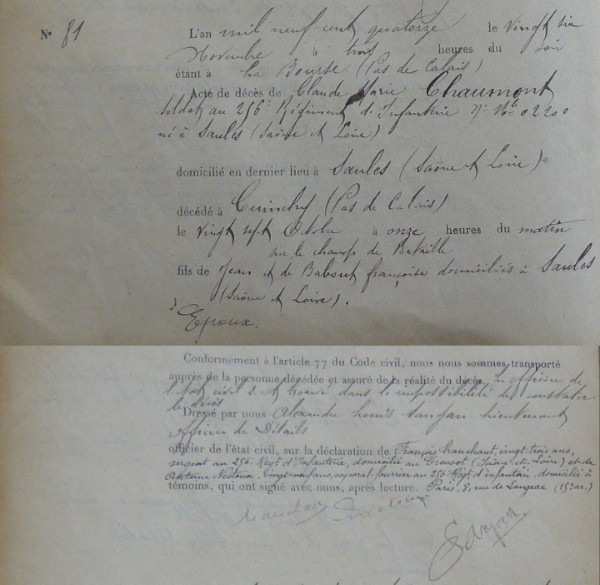 N° 81
L'an mil neuf cent quatorze le vingt six
Novembre à trois heures du soir
étant à La Bourse (Pas de Calais)
Acte de décès de Claude Marie Chaumont
soldat au 256e Régiment d'Infanterie N° Mle 02200
né à Saules (Saône et Loire)
domicilié en dernier lieu à Saules (Saône et Loire)
décédé à Cuinchy (Pas de Calais)
le vingt sept Octobre à onze heures du matin
sur le champ de Bataille
fils de Jean et de Babout françoise domiciliés à Saules
(Saône et Loire).
Epoux.
Conformément à l'article 77 du Code civil, nous nous sommes transporté
auprès de la personne décédée et assuré de la réalité du décès, officier de
l'état civil s'est trouvé dans l'impossibilité de constater
le décès
Dressé par nous Alexandre Louis lieutenant
officier de Détails
officier de l'état civil, sur la déclaration de François vingt-trois ans,
sergent au 256e Régt d'Infanterie, domicilié au Creusot (Saône-et-Loire) et de
Antoine vingt-neuf ans, caporal fourrier au 256e Régt d'infanterie, domicilié à
témoins, qui ont signé avec nous, après lecture. Paris, 8, rue de Langeac (15e ar.)